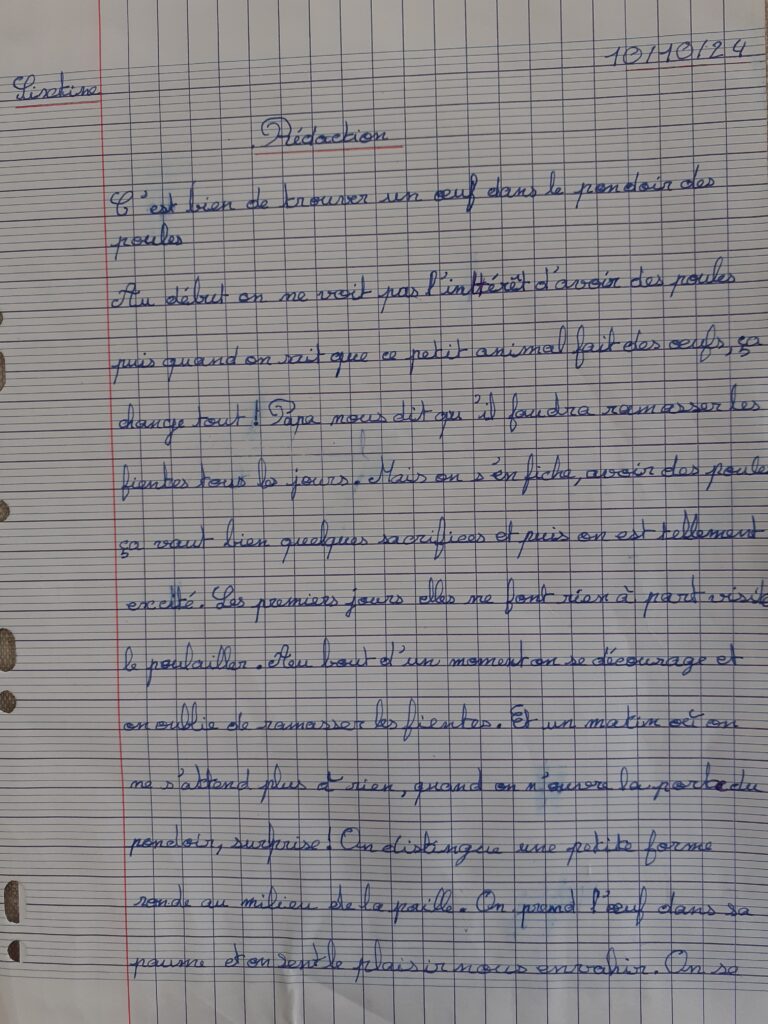 10/10/24
Rédaction
C'est bien de trouver un œuf dans le pondoir des
poules
Au début on ne voit pas l'intérêt d'avoir des poules
puis quand on sait que ce petit animal fait des œufs, ça
change tout ! Papa nous dit qu'il faudra ramasser les
fientes tous les jours. Mais on s'en fiche, avoir des poule
ça vaut bien quelques sacrifices et puis on est tellement
excité. Les premiers jours elles ne font rien à part visite
le poulailler. Au bout d'un moment on se décourage et
on oublie de ramasser les fientes. Et un matin où on
ne s'attend plus à rien, quand on n'ouvre la porte du
pondoir, surprise ! On distingue une petite forme
ronde au milieu de la paille. On prend l'œuf dans sa
paume et on sent le plaisir nous envahir. On se